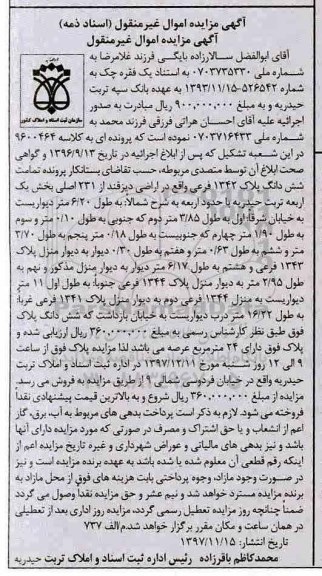 آگهی مزایده اموال غیرمنقول (اسناد ذمه)
آگهی مزایده اموال غیرمنقول
آقای ابوالفضل سالارزاده بایگی فرزند غلامرضا به
شماره ملی ۰۷۰۳۷۳۵۳۳۰ به استناد یک فقره چک به
شماره ۵۲۶۵۴۲-۱۳۹۳/۱۱/۱۵ به عهده بانک سپه تربت
حیدریه و به مبلغ ۹۰۰,۰۰۰,۰۰۰ ریال مبادرت به صدور
اجرائیه علیه آقای احسان هراتی فرزقی فرزند محمد به
شماره ملی ۰۷۰۳۷۱۶۴۳۳ نموده است که پرونده ای به کلاسه ۹۶۰۰۴۶۴
در این شعبه تشکیل که پس از ابلاغ اجرائیه در تاریخ ۱۳۹۶/۹/۱۳ و گواهی
صحت ابلاغ آن توسط متصدی مربوطه، حسب تقاضای بستانکار پرونده تمامت
شش دانگ پلاک ۱۳۴۲ فرعی واقع در اراضی دیزقند از ۲۳۱ اصلی بخش یک
اربعه تربت حیدریه با حدود اربعه به شرح شمالاً: به طول ۶/۲۰ متر دیواریست
به خیابان شرقاً: اول به طول ۳/۸۵ متر دوم که جنوبی به طول ۰/۱۰ متر و سوم
به طول ۱/۹۰ متر چهارم که جنوبیست به طول ۰/۱۸ متر پنجم به طول ۳/۷۰
متر و ششم به طول ۰/۶۳ متر و هفتم به طول ۰/۳۰ دیوار به دیوار منزل پلاک
۱۳۴۳ فرعی و هشتم به طول ۶/۱۷ متر دیوار به دیوار منزل مذکور و نهم به
طول ۲/۹۵ متر به دیوار منزل پلاک ۱۳۴۴ فرعی جنوباً: به طول اول ۱۱ متر
دیواریست به منزل ۱۳۴۴ فرعی دوم به دیوار منزل پلاک ۱۳۴۱ فرعی غرباً:
به طول ۱۶/۲۲ متر درب و دیواریست به خیابان بازداشت که شش دانگ پلاک
فوق طبق نظر کارشناس رسمی به مبلغ ۳۶۰,۰۰۰,۰۰۰ ریال ارزیابی شده و
پلاک فوق دارای ۲۴ مترمربع عرصه می باشد لذا مزایده پلاک فوق از ساعت
۹ الی ۱۲ روز شنبه مورخ ۱۳۹۷/۱۲/۱۱ در اداره ثبت اسناد و املاک تربت
حیدریه واقع در خیابان فردوسی شمالی ۹ از طریق مزایده به فروش می رسد.
مزایده از مبلغ ۳۶۰,۰۰۰,۰۰۰ ریال شروع و به بالاترین قیمت پیشنهادی نقداً
فروخته می شود. لازم به ذکر است پرداخت بدهی های مربوط به آب، برق، گاز
اعم از انشعاب و یا حق اشتراک و مصرف در صورتی که مورد مزایده دارای آنها
باشد و نیز بدهی های مالیاتی و عوارض شهرداری و غیره تاریخ مزایده اعم از
اینکه رقم قطعی آن معلوم شده یا نشده باشد به عهده برنده مزایده است و نیز
در صورت وجود مازاد، وجوه پرداختی بابت هزینه های فوق از محل مازاد به
برنده مزایده مسترد خواهد شد و نیم عشر و حق مزایده نقداً وصول می گردد
ضمناً چنانچه روز مزایده تعطیل رسمی گردد، مزایده روز اداری بعد از تعطیلی
در همان ساعت و مکان مقرر برگزار خواهد شد.م/الف ۷۳۷
تاریخ انتشار: ۱۳۹۷/۱۱/۱۵
محمدکاظم باقرزاده رئیس اداره ثبت اسناد و املاک تربت حیدریه
سازمان ثبت اسناد و املاک کشور